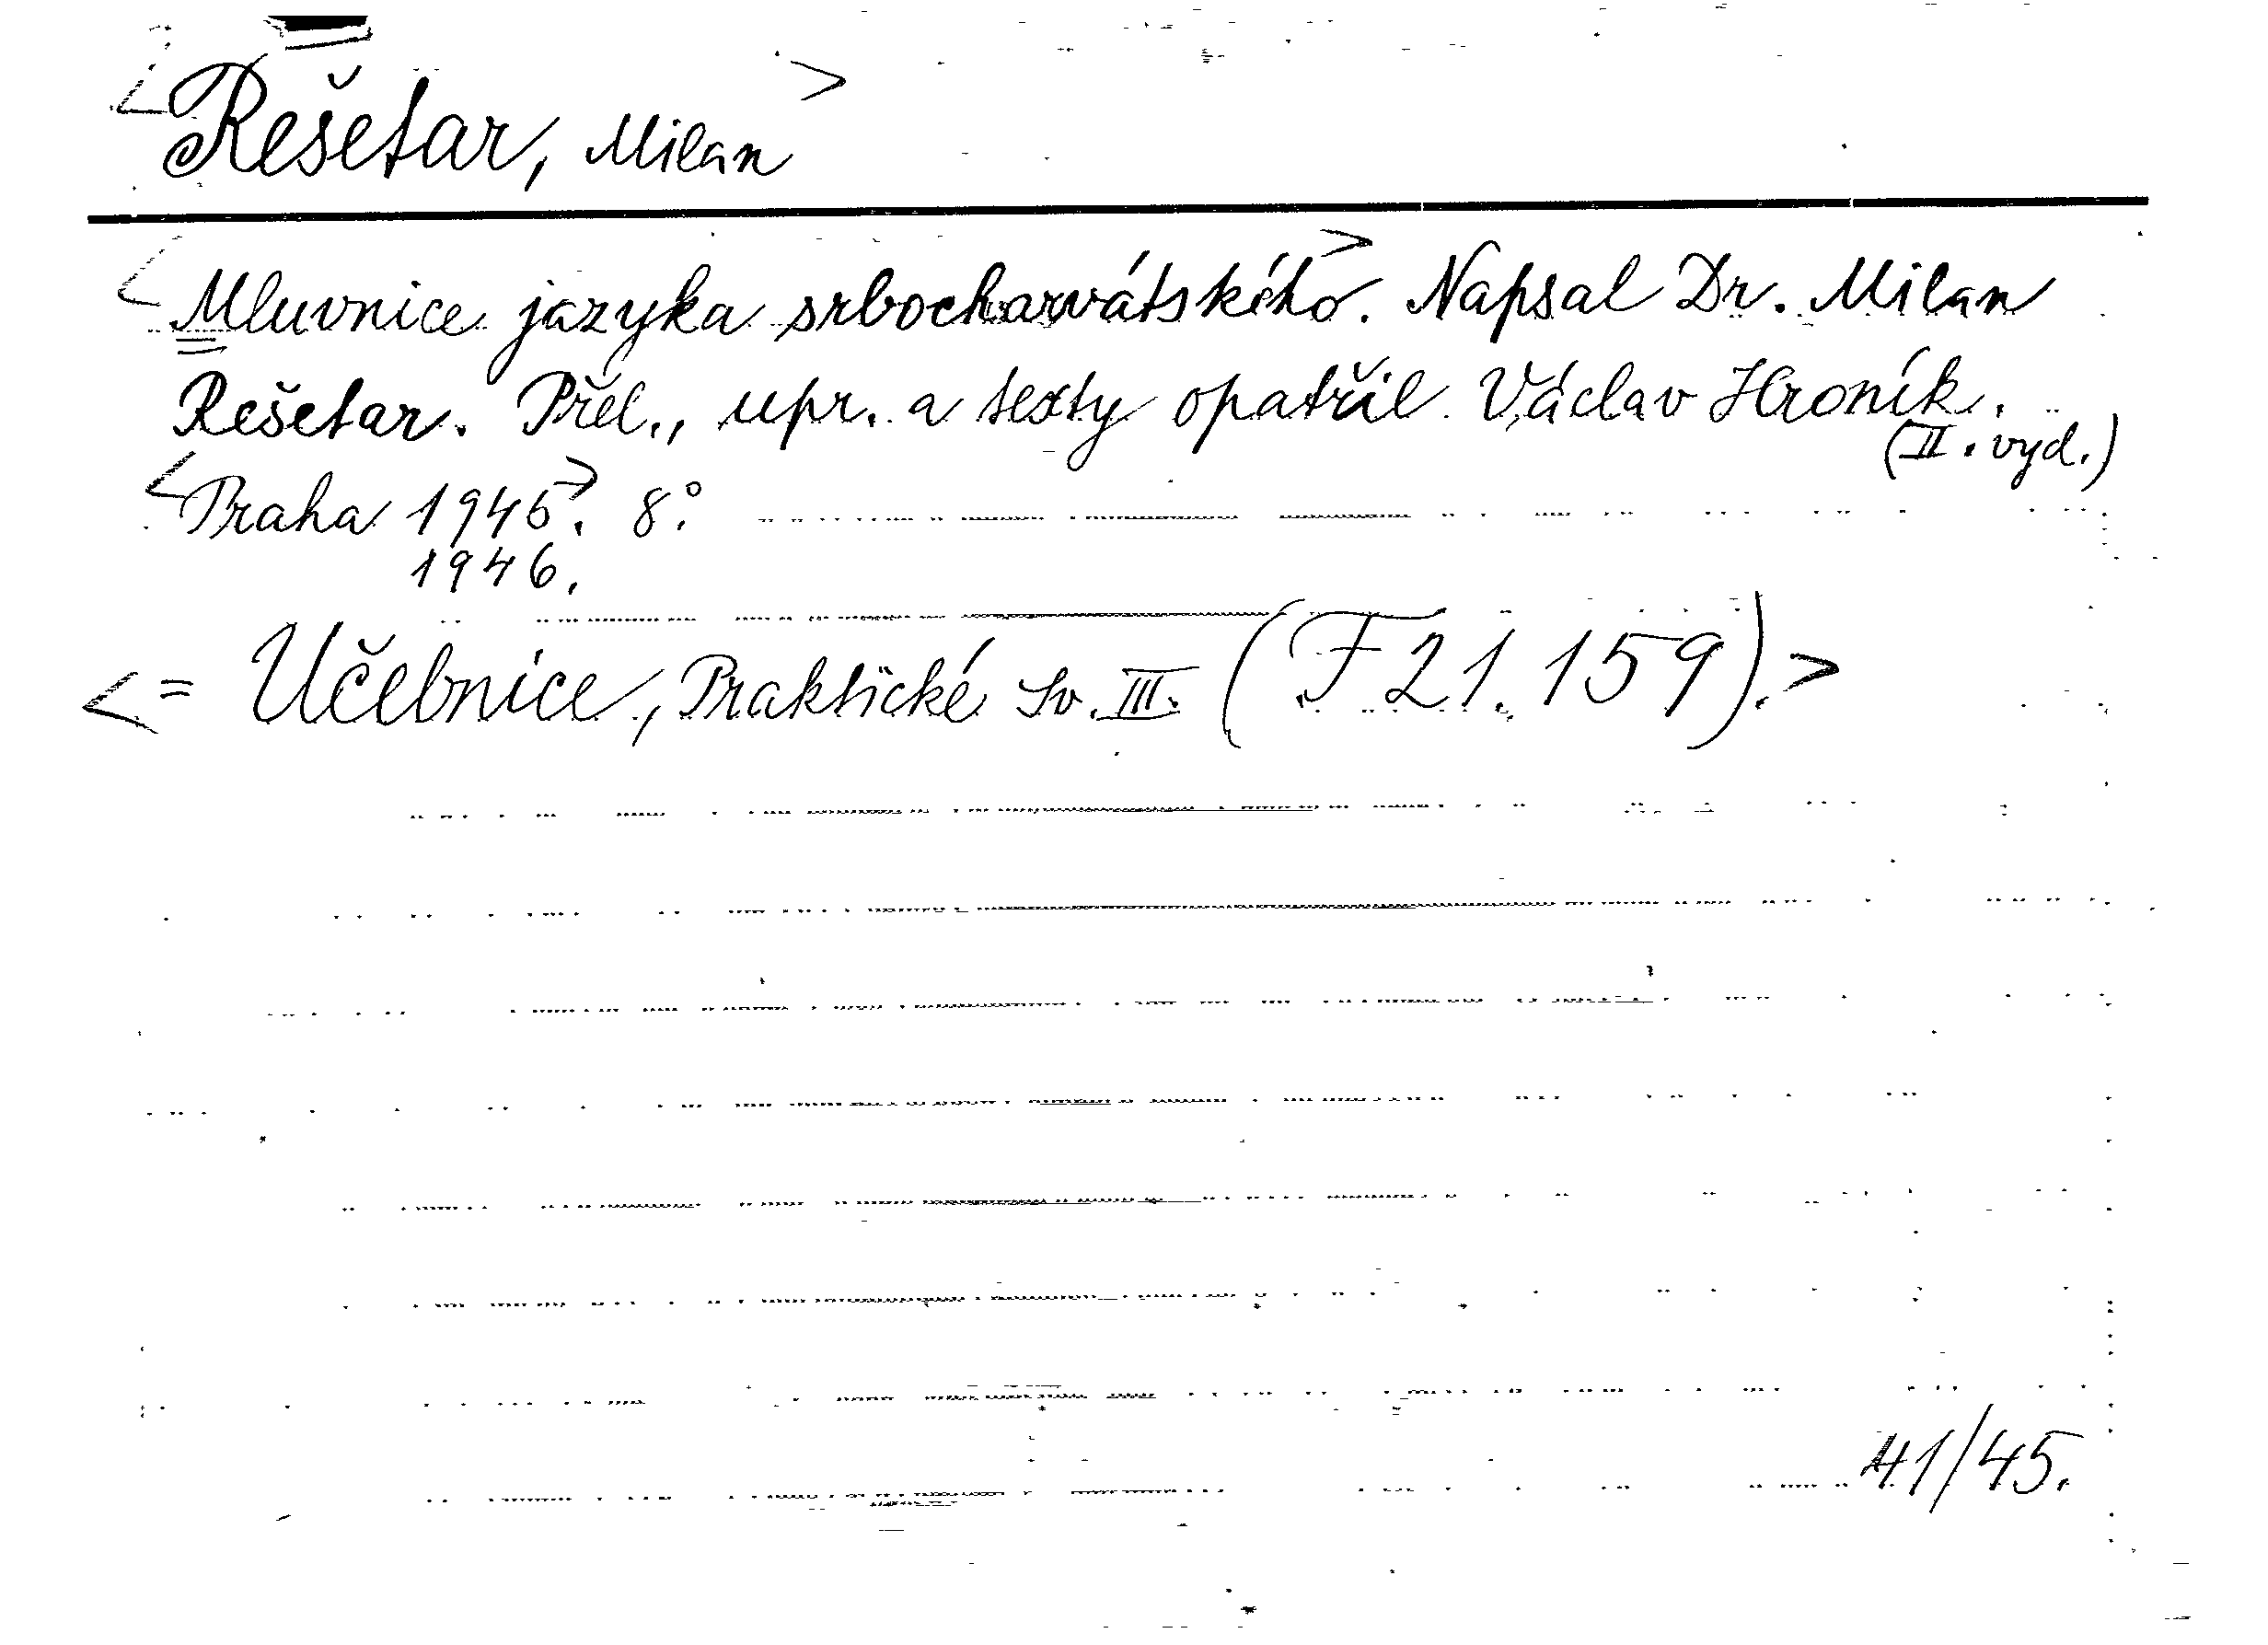 <Rešetar, Milan>
<Mluvnice jazyka srbocharvátského>. Napsal Dr. Milan
Rešetar. Přel., upr. a texty opatřil Václav Hroník.
(II. vyd.)
<Praha 1946>. 8°.
1946.
<= Učebnice, Praktické Sv. III. (F 21.159).>
41/45.